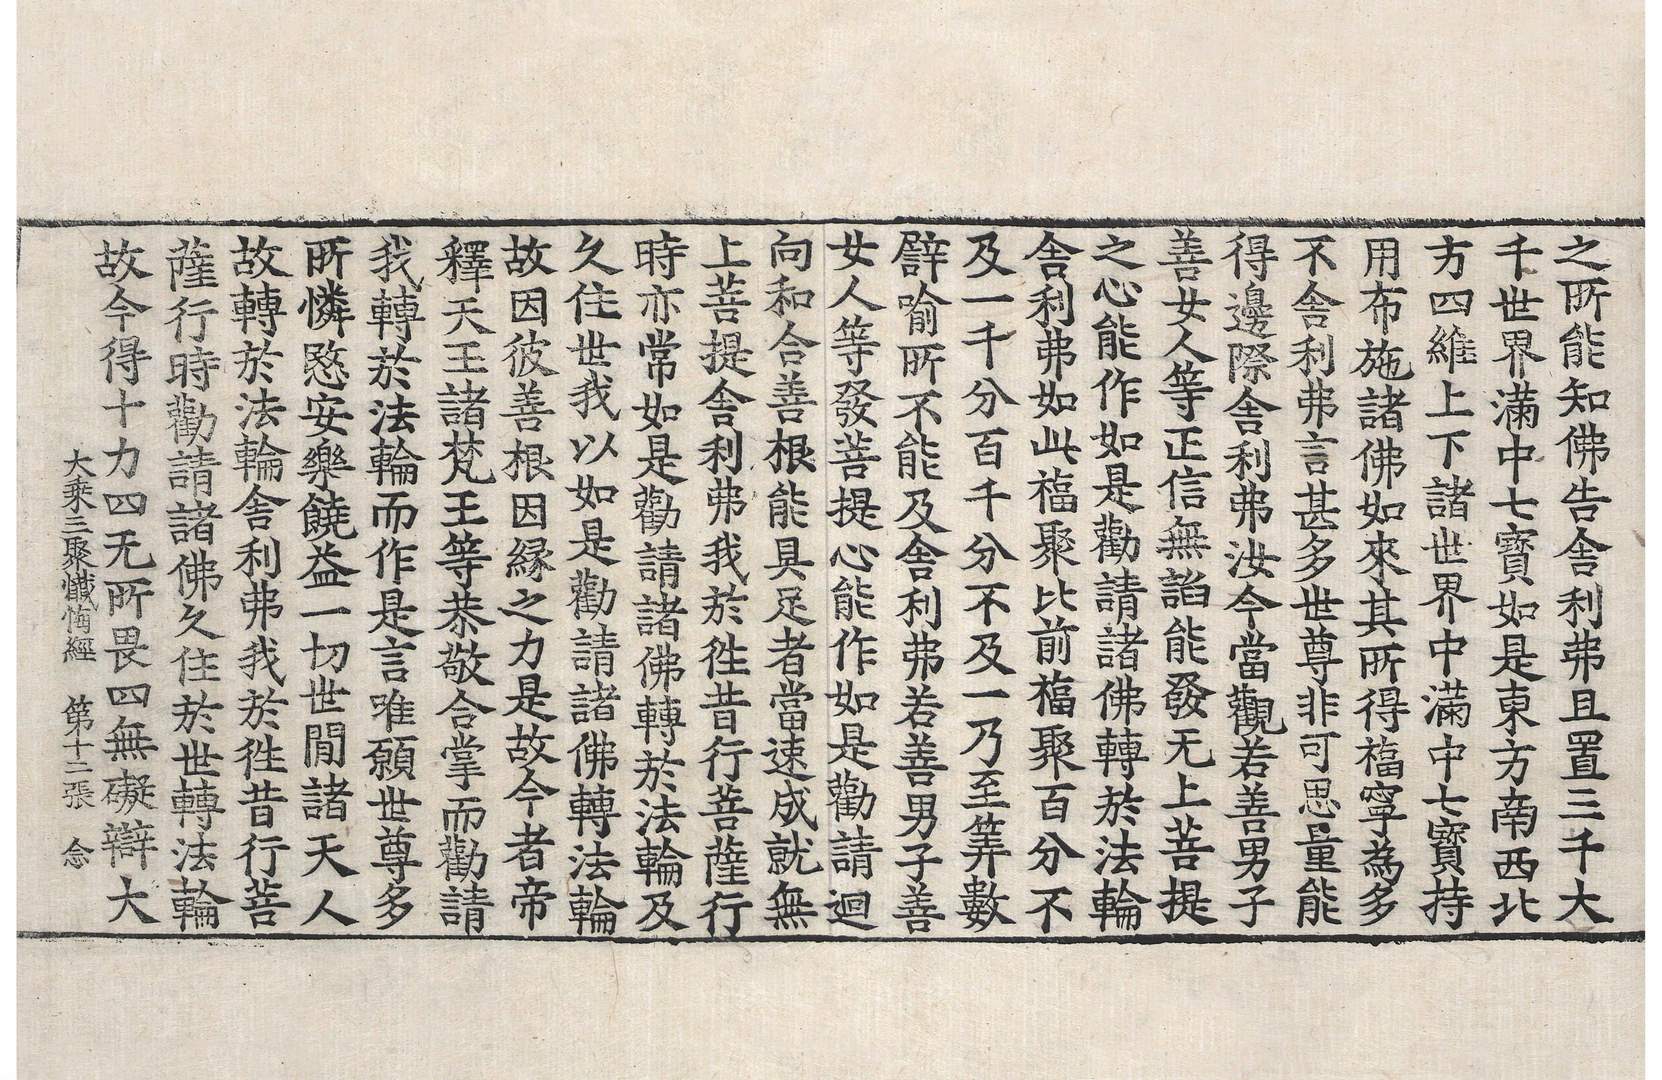 之所能知佛告舍利弗且置三千大
千世界滿中七寶如是東方南西北
方四維上下諸世界中滿中七寶持
用布施諸佛如來其所得福寧為多
不舍利弗言甚多世尊非可思量能
得邊際舍利弗汝今當觀若善男子
善女人等正信無諂能發无上菩提
之心能作如是勸請諸佛轉於法輪
舍利弗如此福聚比前福聚百分不
及一千分百千分不及一乃至筭數
譬喻所不能及舍利弗若善男子善
女人等發菩提心能作如是勸請迴
向和合善根能具足者當速成就無
上菩提舍利弗我於徃昔行菩薩行
時亦常如是勸請諸佛轉於法輪及
久住世我以如是勸請諸佛轉法輪
故因彼善根因緣之力是故今者帝
釋天王諸梵王等恭敬合掌而勸請
我轉於法輪而作是言唯願世尊多
所憐愍安樂饒益一切世間諸天人
故轉於法輪舍利弗我於徃昔行菩
薩行時勸請諸佛久住於世轉法輪
故今得十力四无所畏四無礙辯大
大乘三聚懺悔經 第十二張 念